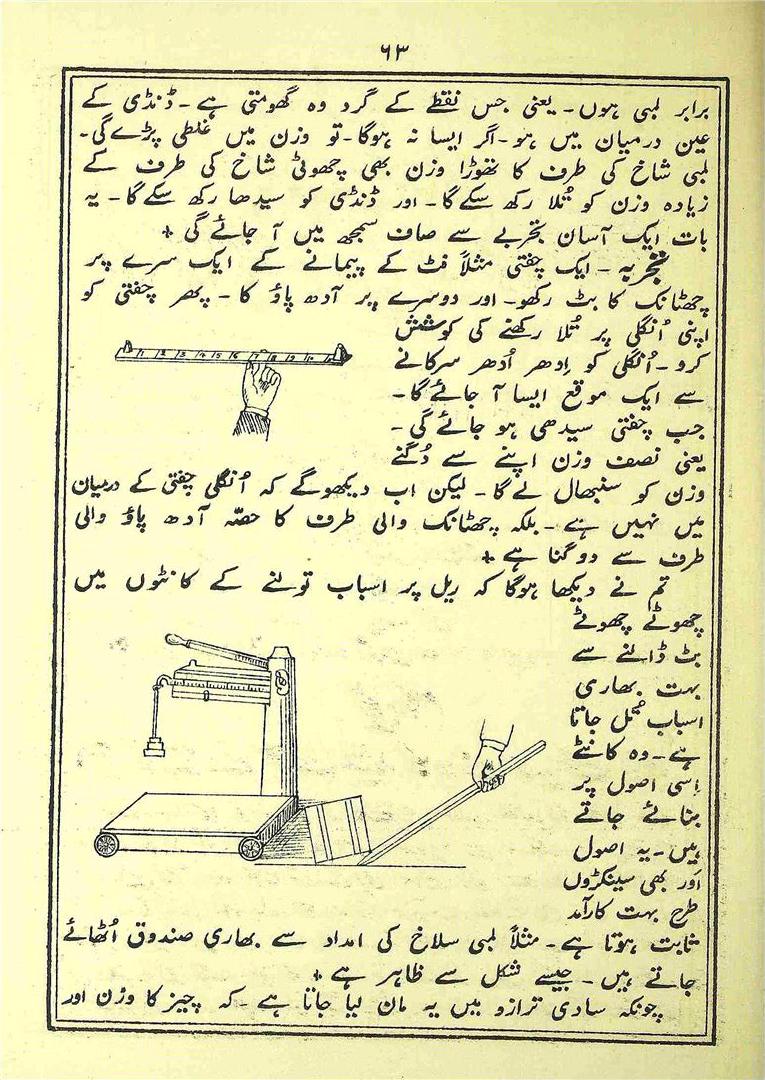 ۶۳
برابر لمبی ہوں۔ یعنی جس نقطے کے گرد وہ گھومتی ہے۔ ڈنڈی کے
عین درمیان میں ہو۔ اگر ایسا نہ ہوگا۔ تو وزن میں غلطی پڑے گی۔
لمبی شاخ کی طرف کا تھوڑا وزن بھی چھوٹی شاخ کی طرف کے
زیادہ وزن کو تُلا رکھ سکے گا۔ اور ڈنڈی کو سیدھا رکھ سکے گا۔ یہ
بات ایک آسان تجربے سے صاف سمجھ میں آ جائے گی +
تجربہ ۔ ایک چفتی مثلاً فٹ کے پیمانے کے ایک سرے پر
چھٹانک کا بٹ رکھو۔ اور دوسرے پر آدھ پاؤ کا ۔ پھر چفتی کو
اپنی اُنگلی پر تُلا رکھنے کی کوشش
کرو۔ اُنگلی کو اِدھر اُدھر سرکانے
سے ایک موقع ایسا آ جائے گا۔
جب چفتی سیدھی ہو جائے گی ۔
یعنی نصف وزن اپنے سے دُگنے
وزن کو سنبھال لے گا۔ لیکن اب دیکھوگے کہ اُنگلی چفتی کے درمیان
میں نہیں ہے ۔ بلکہ چھٹانک والی طرف کا حصّہ آدھ پاؤ والی
طرف سے دو گنا ہے +
تم نے دیکھا ہوگا کہ ریل پر اسباب تولنے کے کانٹوں میں
چھوٹے چھوٹے
بٹ ڈالنے سے
بہت بھاری
اسباب تُل جاتا
ہے۔ وہ کانٹے
اِسی اصول پر
بنائے جاتے
ہیں۔ یہ اصول
اَور بھی سینکڑوں
طرح بہت کارآمد
ثابت ہوتا ہے۔ مثلاً لمبی سلاخ کی امداد سے بھاری صندوق اُٹھائے
جاتے ہیں۔ جیسے شکل سے ظاہر ہے +
چونکہ سادی ترازو میں یہ مان لیا جاتا ہے۔ کہ چیز کا وزن اور
1 2 3 4 5 6 7 8 9 10